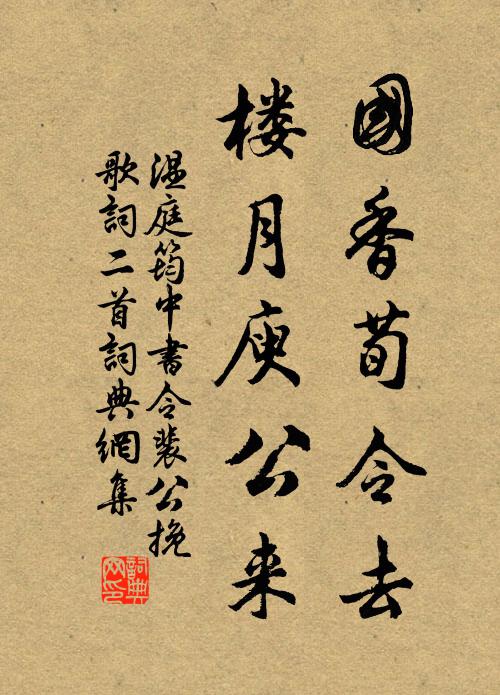 國香荀令去
楼月庾公来
温庭筠中書令裴公挽
歌詞二首詞典網集
詞典
网印